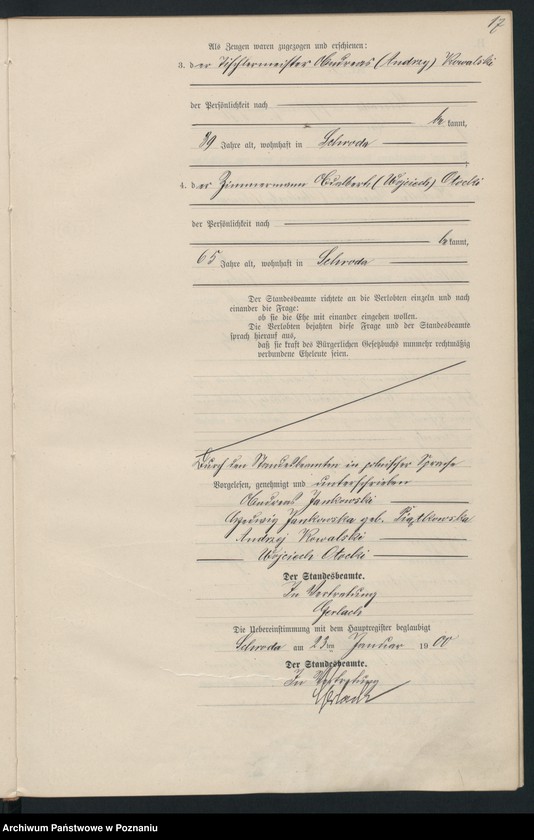 17
Als Zeugen waren zugezogen und erschienen:
3. der Tischlermeister Andreas (Andrzej) Kowalski
der Persönlichkeit nach
bekannt,
39 Jahre alt, wohnhaft in Schroda
4. der Zimmermann Adalbert (Wojciech) Otocki
der Persönlichkeit nach
bekannt,
65 Jahre alt, wohnhaft in Schroda
Der Standesbeamte richtete an die Verlobten einzeln und nach
einander die Frage:
ob sie die Ehe mit einander eingehen wollen.
Die Verlobten bejahten diese Frage und der Standesbeamte
sprach hierauf aus,
daß sie kraft des Bürgerlichen Gesetzbuchs nunmehr rechtmäßig
verbundene Eheleute seien.
Durch den Standesbeamten in polnischer Sprache
Vorgelesen, genehmigt und unterschrieben
Andreas Jankowski
Hedwig Jankowska geb. Piątkowska
Andrzej Kowalski
Wojciech Otocki
Der Standesbeamte.
In Vertretung
Gerlach
Die Uebereinstimmung mit dem Hauptregister beglaubigt
Schroda am 23ten Januar 1900
Der Standesbeamte.
In Vertretung
Gerlach
Archiwum Państwowe w Poznaniu